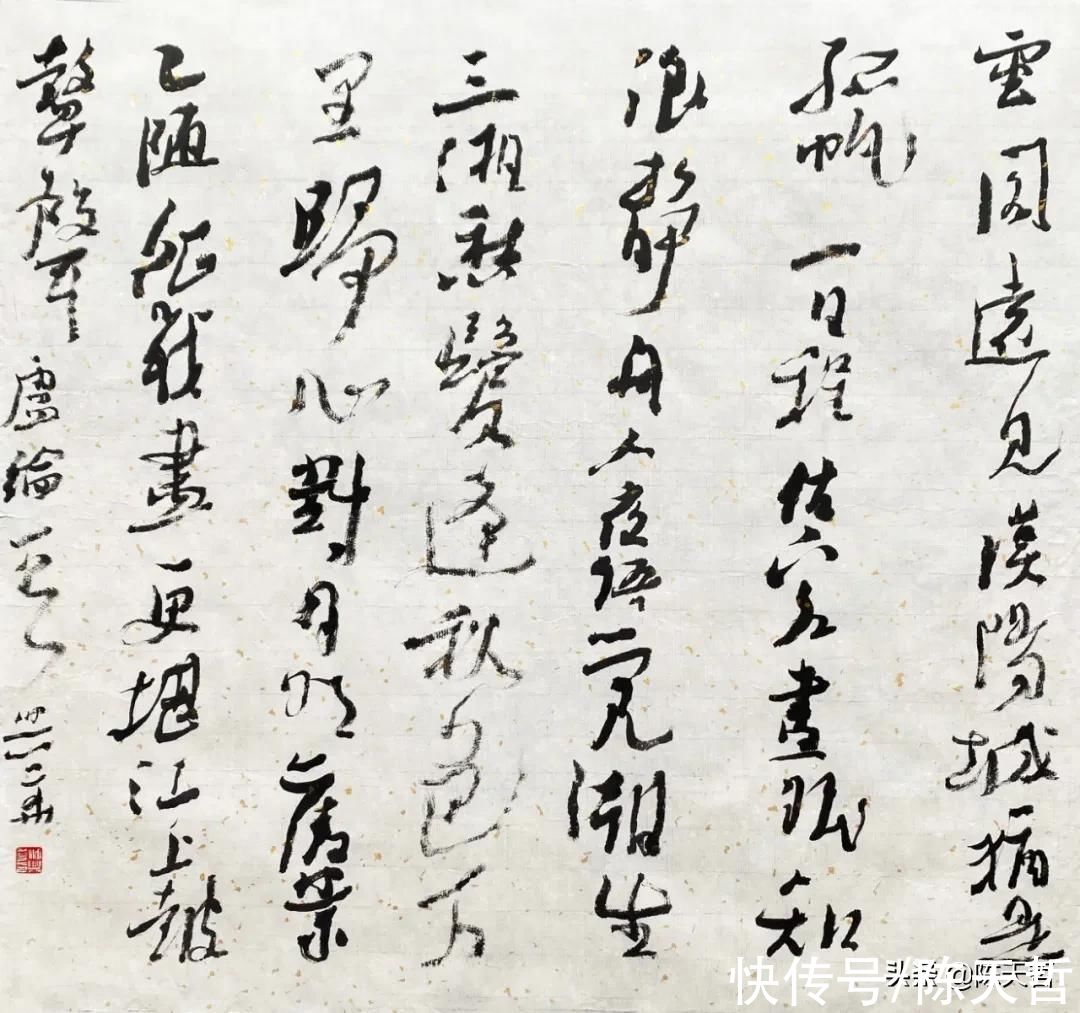 雲開遠見漢陽城猶是
孤帆一日程估客晝眠知
浪靜舟人夜語覺潮生
三湘愁鬢逢秋色万
里歸心對月明舊業
已随征戰盡更堪江上鼓
鼙聲 盧綸
头条 @陈天哲
快传号/陈天哲